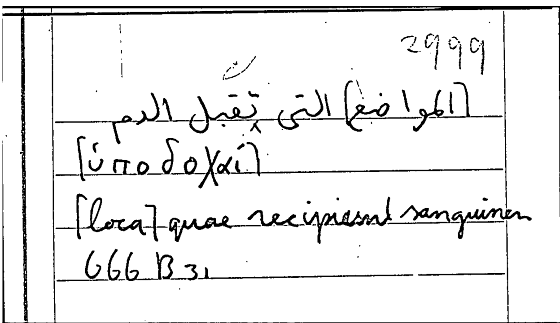 2999
[المواضع] التى تقبل الدم
[ὑποδοχαί]
[loca] quae recipiunt sanguinem
666 B 31